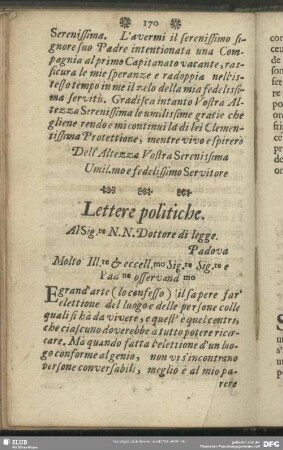 170
Serenissima. L'avermi il serenissimo si-
gnore suo Padre intentionata una Com-
pagnia al primo Capitanato vacante, ras-
sicura le mie speranze e radoppia nell'is-
tesso tempo in me il zelo della mia fedelissi-
ma servitù. Gradisca intanto Vostra Al-
tezza Serenissima le umilissime gratie che
gliene rendo e mi continui la di lei Clemen-
tissima Protettione, mentre vivo e spirerò
Dell'Altezza Vostra Serenissima
Umil.mo e fedelissimo Servitore
Lettere politiche.
Al Sig.re N.N. Dottore di legge.
Padova
Molto Ill.re & eccell.mo Sig.re Sig.re e
Pad.ne osservand.mo
E grand'arte (lo confesso) il sapere far'
elettione del luogo e delle persone colle
quali si hà da vivere, e quest' è quel centro,
che ciascuno doverebbe à tutto potere ricer-
care. Ma quando fatta l'elettione d'un luo-
go conforme al genio, non vi s'incontrano
persone conversabili, meglio è al mio pa-
rere
SLUB
DFG